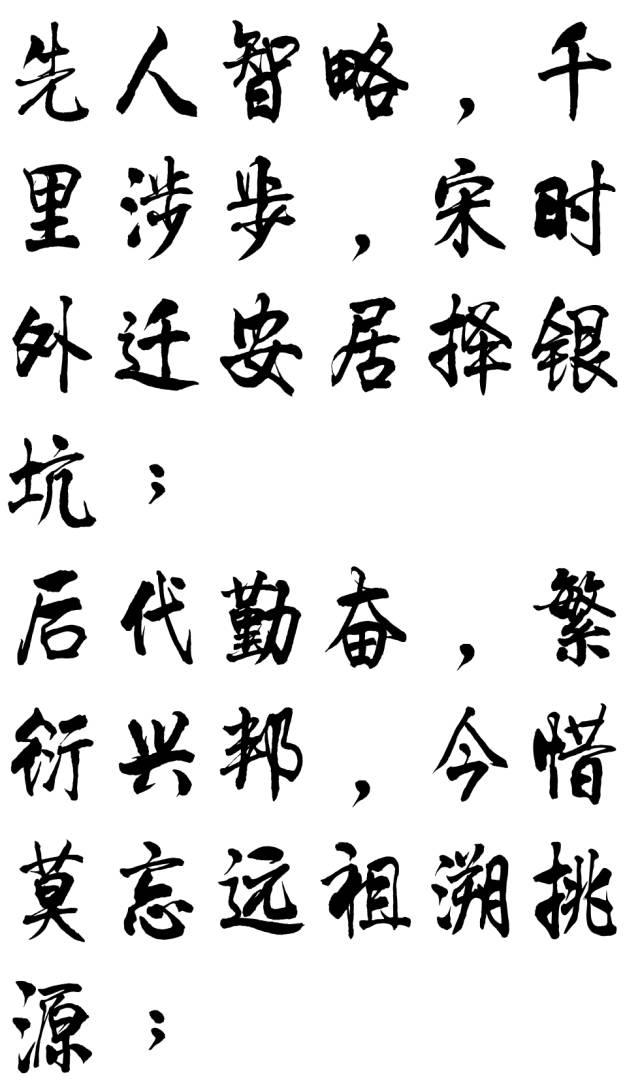 先人智略，千
里涉步，宋时
外迁安居择银
坑；
后代勤奋，繁
衍兴邦，今惜
莫忘远祖溯挑
源；